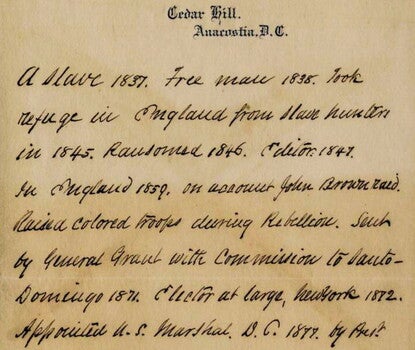 Cedar Hill.
Anacostia, D.C.
A slave 1837. Free man 1838. Took
refuge in England from slave hunters
in 1845. Ransomed 1846. Editor 1847.
In England 1859. on account John Brown raid.
Raised colored troops during Rebellion. Sent
by General Grant with Commission to Santo-
Domingo 1871. Elector at large, New York 1872.
Appointed U.S. Marshal. D.C. 1877. by Prest